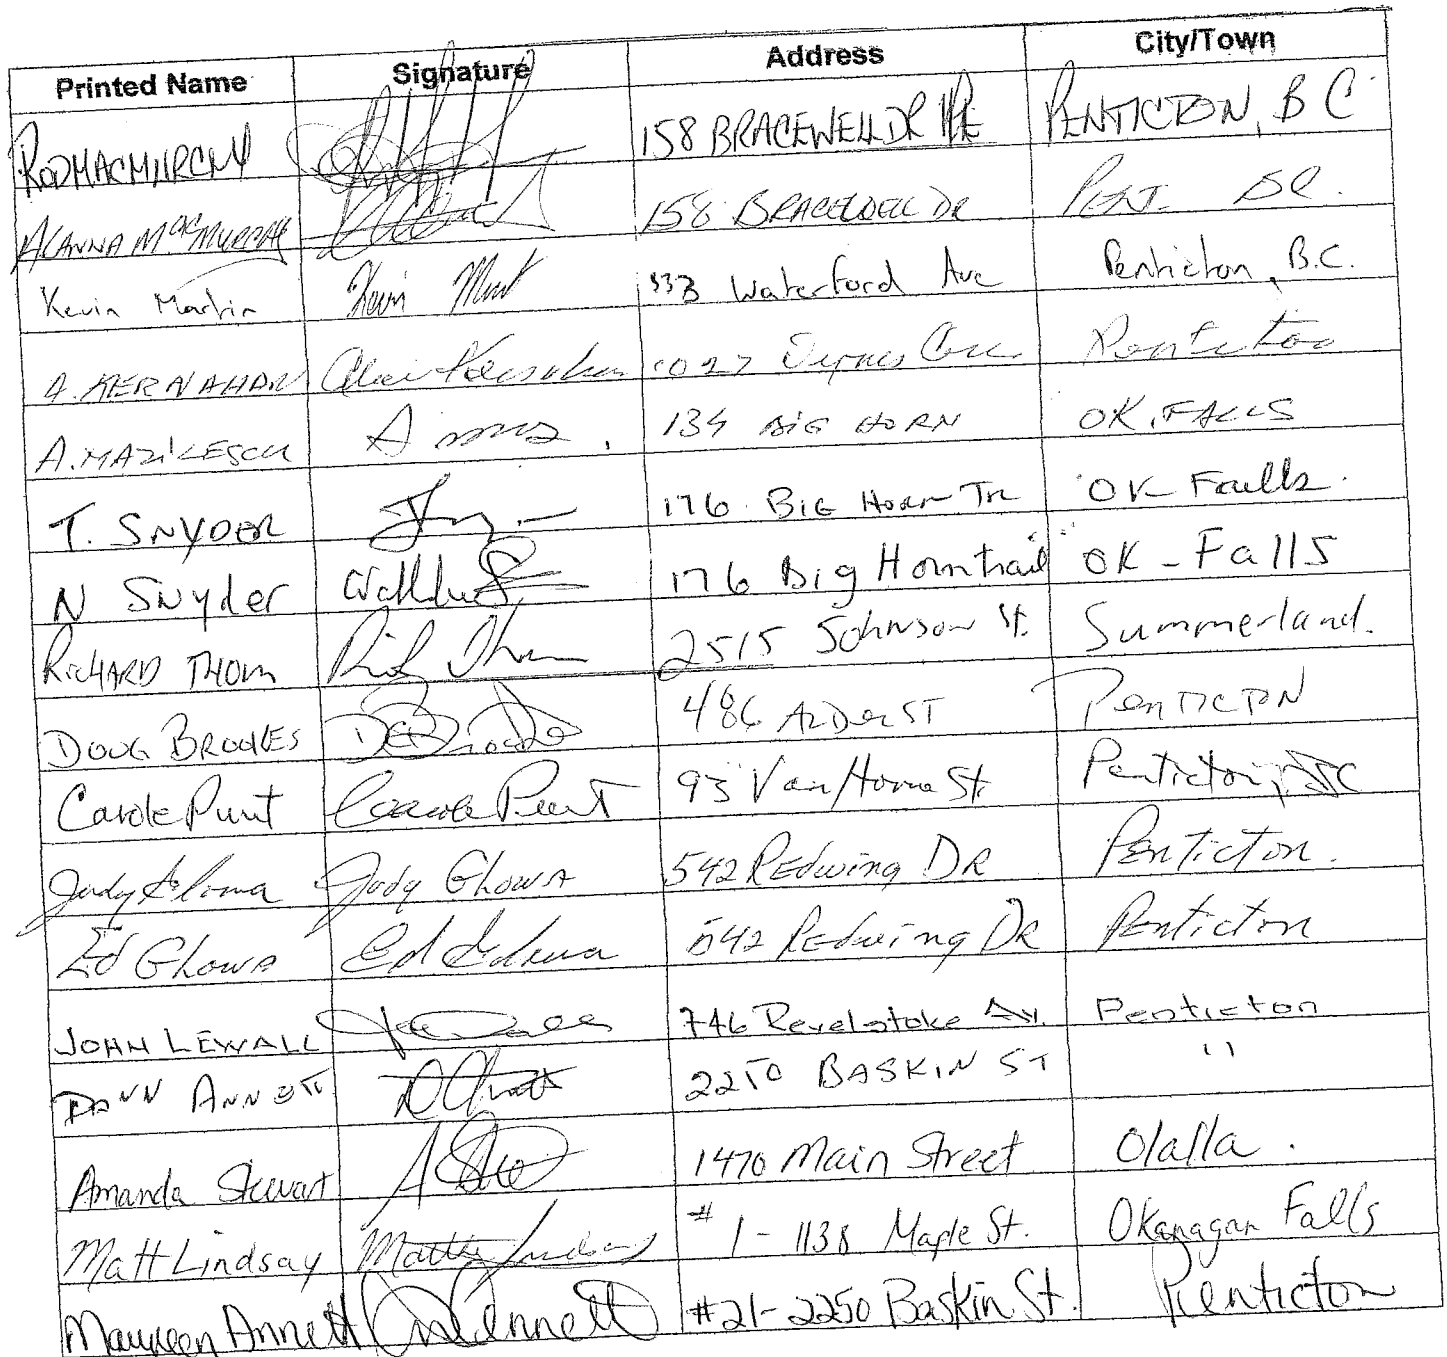 Printed Name Signature Address City/Town
ROD MACMURCHY 158 BRACEWELL DR PENTICTON, B C
ALANNA MacMURCHY 158 BRACEWELL DR PENT. BC.
Kevin Martin Kevin 333 Waterford Ave Penticton, B.C.
A. KERNAHAN Penticton
A. MAZILESCU 134 BIG HORN OK. FALLS
T. SNYDER 176 BIG HORN TR OK Falls.
N Snyder 176 Big Horn trail OK - Falls
RICHARD THOM 2515 JOHNSON St. Summerland.
DOUG BROOKES 486 ALDER ST PENTICTON
Carole Punt Carole Punt 93 Van Horne St. Penticton, BC
Judy Glowa Judy Glowa 542 Redwing DR Penticton.
Ed Glowa Ed Glowa 542 Redwing DR Penticton
JOHN LEWALL 746 Revelstoke Av. Penticton
DAWN ANNETT 2250 BASKIN ST "
Amanda Stewart 1470 Main Street Olalla.
Matt Lindsay Matthew Lindsay #1-1138 Maple St. Okanagan Falls
Maureen Annett M Annett #21-2250 Baskin St. Penticton